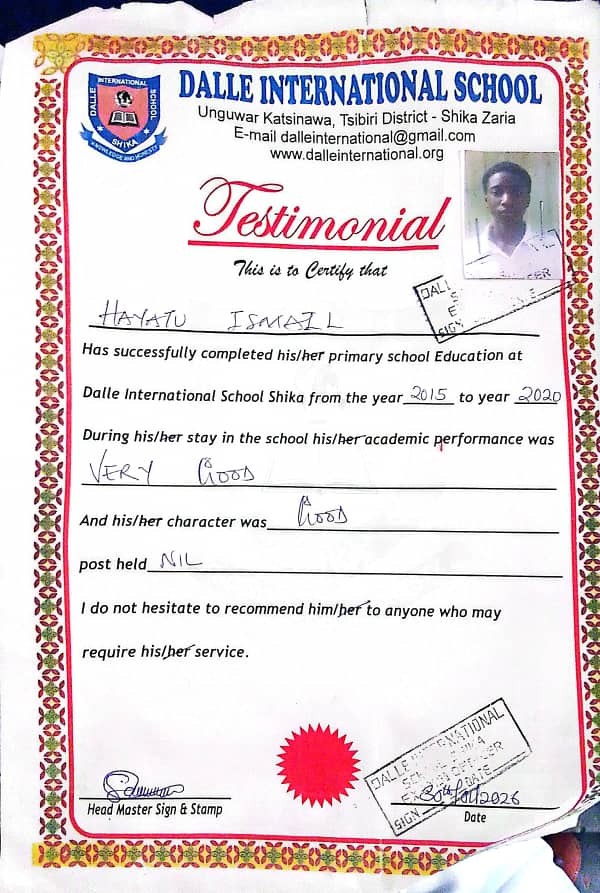 DALLE INTERNATIONAL SCHOOL
INTERNATIONAL
DALLE
SCHOOL
SHIKA
KNOWLEDGE AND HONESTY
Unguwar Katsinawa, Tsibiri District - Shika Zaria
E-mail dalleinternational@gmail.com
www.dalleinternational.org
Testimonial
This is to Certify that
DALL
SIGN
HAYATU ISMAIL
Has successfully completed his/her primary school Education at
Dalle International School Shika from the year 2015 to year 2020
During his/her stay in the school his/her academic performance was
VERY GOOD
And his/her character was GOOD
post held NIL
I do not hesitate to recommend him/her to anyone who may
require his/her service.
DALLE INTERNATIONAL
SHIKA
OFFICER
DATE
SIGN
2026
Head Master Sign & Stamp
Date